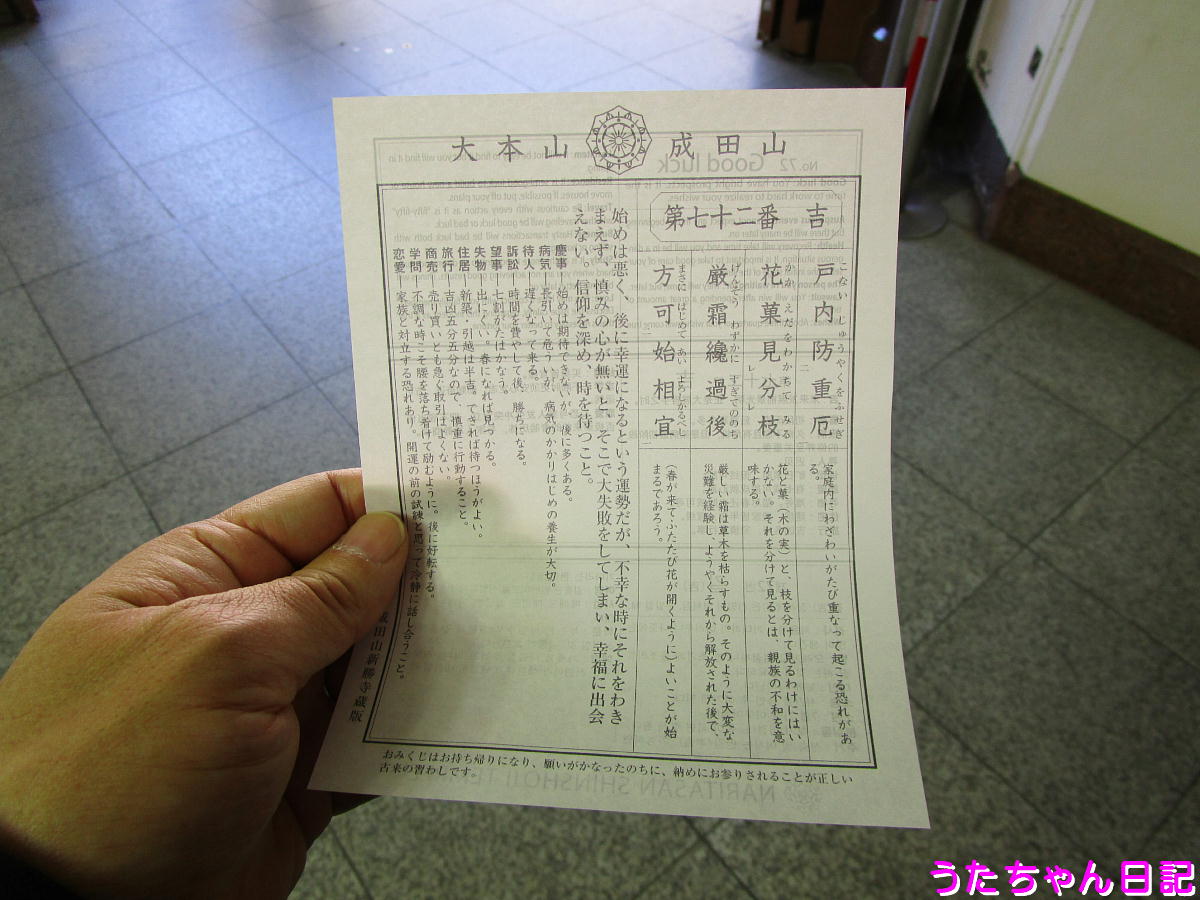 大本山 成田山
第七十二番 吉
戸内防重厄
こない じゅうやくをふせぎ
家庭内にわざわいがたび重なって起こる恐れがあ
る。
花菓見分枝
かか えだをわかちて みる
花と菓（木の実）と、枝を分けて見るわけにはい
かない。それを分けて見るとは、親族の不和を意
味する。
厳霜纔過後
げんそう わずかに すぎてののち
厳しい霜は草木を枯らすもの。そのように大変な
災難を経験し、ようやくそれから解放された後で、
方可始相宜
まさに はじめて あい よろしかるべし
（春が来てふたたび花が開くように）よいことが始
まるであろう。
始めは悪く、後に幸運になるという運勢だが、不幸な時にそれをわき
まえず、慎みの心が無いと、そこで大失敗をしてしまい、幸福に出会
えない。信仰を深め、時を待つこと。
慶事―始めは期待できないが、後に多くある。
病気―長引いて危ういが、病気のかかりはじめの養生が大切。
待人―遅くなって来る。
訴訟―時間を費やして後、勝ちになる。
望事―七割がたはかなう。
失物―出にくい。春になれば見つかる。
住居―新築・引越は半吉。できれば待つほうがよい。
旅行―吉凶五分五分なので、慎重に行動すること。
商売―売り買いとも急ぐ取引はよくない。
学問―不調な時こそ腰を落ち着けて励むように。後に好転する。
恋愛―家族と対立する恐れあり。開運の前の試練と思って冷静に話し合うこと。
成田山新勝寺蔵版
おみくじはお持ち帰りになり、願いがかなったのちに、納めにお参りされることが正しい
古来の習わしです。
うたちゃん日記